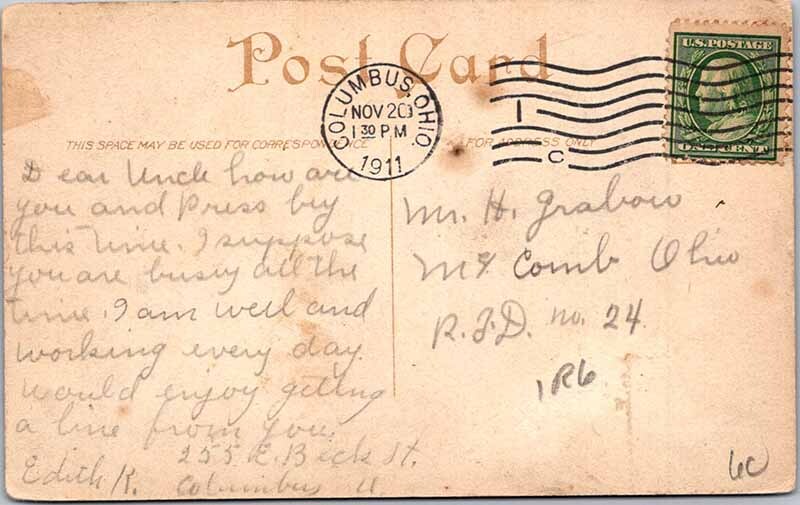 Post Card
U.S. POSTAGE
ONE CENT
COLUMBUS, OHIO.
NOV 20
1 30 PM
1911
1
C
THIS SPACE MAY BE USED FOR CORRESPONDENCE
FOR ADDRESS ONLY
Dear Uncle how are
you and Press by
this time. I suppose
you are busy all the
time. I am well and
working every day
would enjoy getting
a line from you.
255 E. Beck St.
Edith K. Columbus O.
Mr. H. Grabow
Mc Comb Ohio
R.F.D. no. 24
1R6